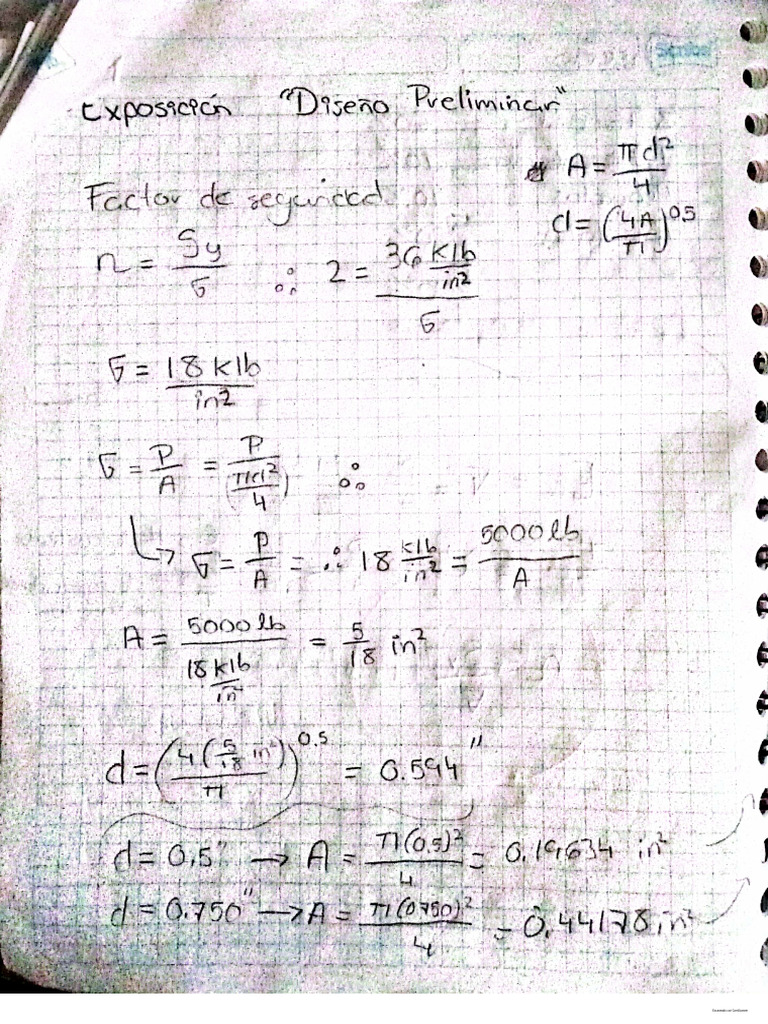 Scribe
Exposición "Diseño Preliminar"
A = πd²/4
Factor de seguridad
d = (4A/π)^0.5
n = Sy/σ ∴ 2 = (36 klb/in²)/σ
σ = 18 klb/in²
σ = P/A = P/(πd²/4) ∴
↳ σ = P/A = ∴ 18 klb/in² = 5000 lb/A
A = 5000 lb/(18 klb/in) = 5/18 in²
d = (4(5/18 in²)/π)^0.5 = 0.594"
d = 0.5" → A = π(0.5)²/4 = 0.19634 in²
d = 0.750" → A = π(0.750)²/4 = 0.44178 in²